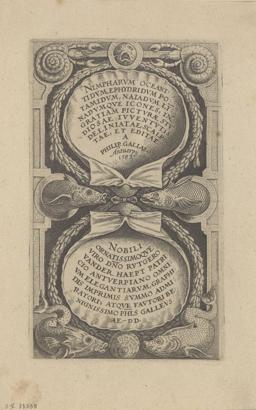 NEMPHARVM OCEANI
TIDVM, EPHYDRIDVM PO
TAMIDVM, NAIADVM, LY
NADVMQVE ICONES, IN
GRATIAM PICTVRÆ STV
DIOSAE IVVENTVTIS
DELINIATAE, SCALP
TAE, ET EDITAE
A
PHILIP. GALLAEO
Antuerp.
NOBILI
ORNATISSIMOQVE
VIRO DNO RVTGERO
VANDER HAEPT PATRI
CIO ANTVERPIANO OMNI
VM ELEGANTIARVM, GRAPHI
HIS IMPRIMIS SVMMO ADMI
RATORI, ATQVE FAVTORI BE
NIGNISSIMO PHLS GALLEVS
DD.